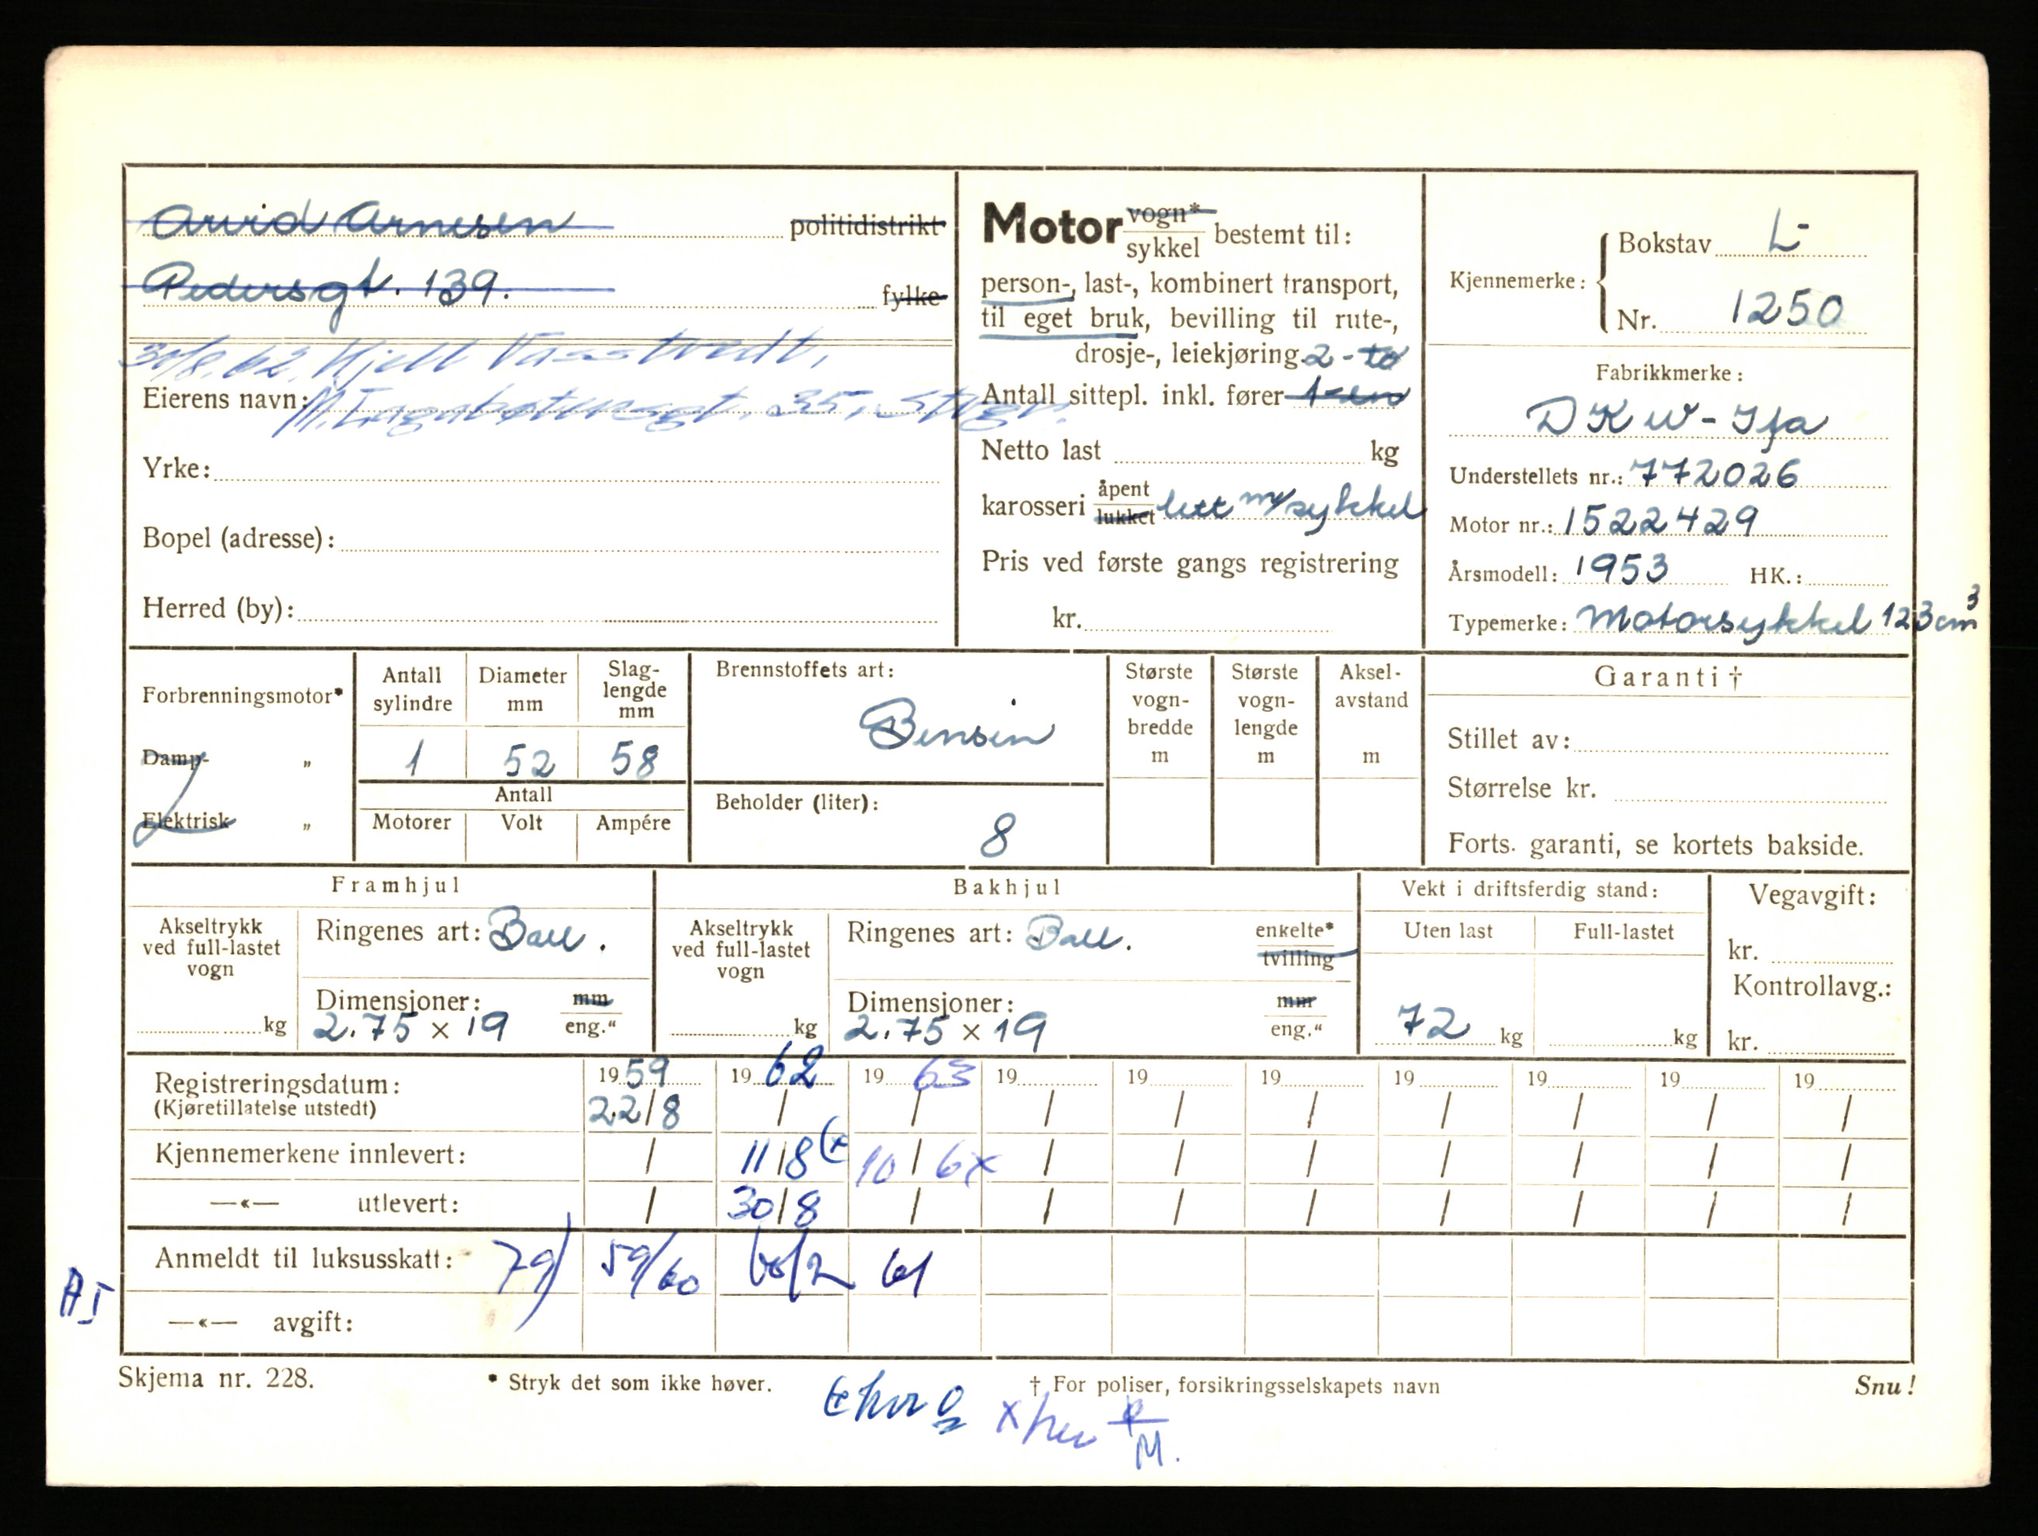 Arvid Arnesen politidistrikt
Pedersgt. 139. fylke
30/8.62. Kjell
Eierens navn: 35, Stvgr.
Yrke:
Bopel (adresse):
Herred (by):
Motor vogn* / sykkel bestemt til:
person-, last-, kombinert transport,
til eget bruk, bevilling til rute-,
drosje-, leiekjøring. 2 - to
Antall sittepl. inkl. fører 1 - en
Netto last kg
karosseri åpent / lukket lett m/sykkel
Pris ved første gangs registrering
kr.
Kjennemerke: Bokstav L-
Nr. 1250
Fabrikkmerke:
DKW - Ifa
Understellets nr.: 772026
Motor nr.: 1522429
Årsmodell: 1953 HK.:
Typemerke: Motorsykkel 123 cm³
Forbrenningsmotor*
Damp- „
Elektrisk „
Antall sylindre Diameter mm Slaglengde mm
1 52 58
Antall
Motorer Volt Ampére
Brennstoffets art:
Bensin
Beholder (liter):
8
Største vogn-bredde m
Største vogn-lengde m
Aksel-avstand m
Garanti †
Stillet av:
Størrelse kr.
Forts. garanti, se kortets bakside.
Framhjul
Akseltrykk ved full-lastet vogn
kg
Ringenes art: Ball.
Dimensjoner: mm / eng."
2.75 × 19
Bakhjul
Akseltrykk ved full-lastet vogn
kg
Ringenes art: Ball. enkelte* / tvilling
Dimensjoner: mm / eng."
2.75 × 19
Vekt i driftsferdig stand:
Uten last Full-lastet
72 kg kg
Vegavgift:
kr.
Kontrollavg.:
kr.
Registreringsdatum: 1959 1962 1963 19 19 19 19 19 19 19
(Kjøretillatelse utstedt) 22/8 / / / / / / / / /
Kjennemerkene innlevert: / 11/8 (x 10/6 x / / / / / / /
—«— utlevert: / 30/8 / / / / / / / /
Anmeldt til luksusskatt: 79) 59/60 61
AJ
—«— avgift:
Skjema nr. 228. * Stryk det som ikke høver. † For poliser, forsikringsselskapets navn Snu!
x her
M.